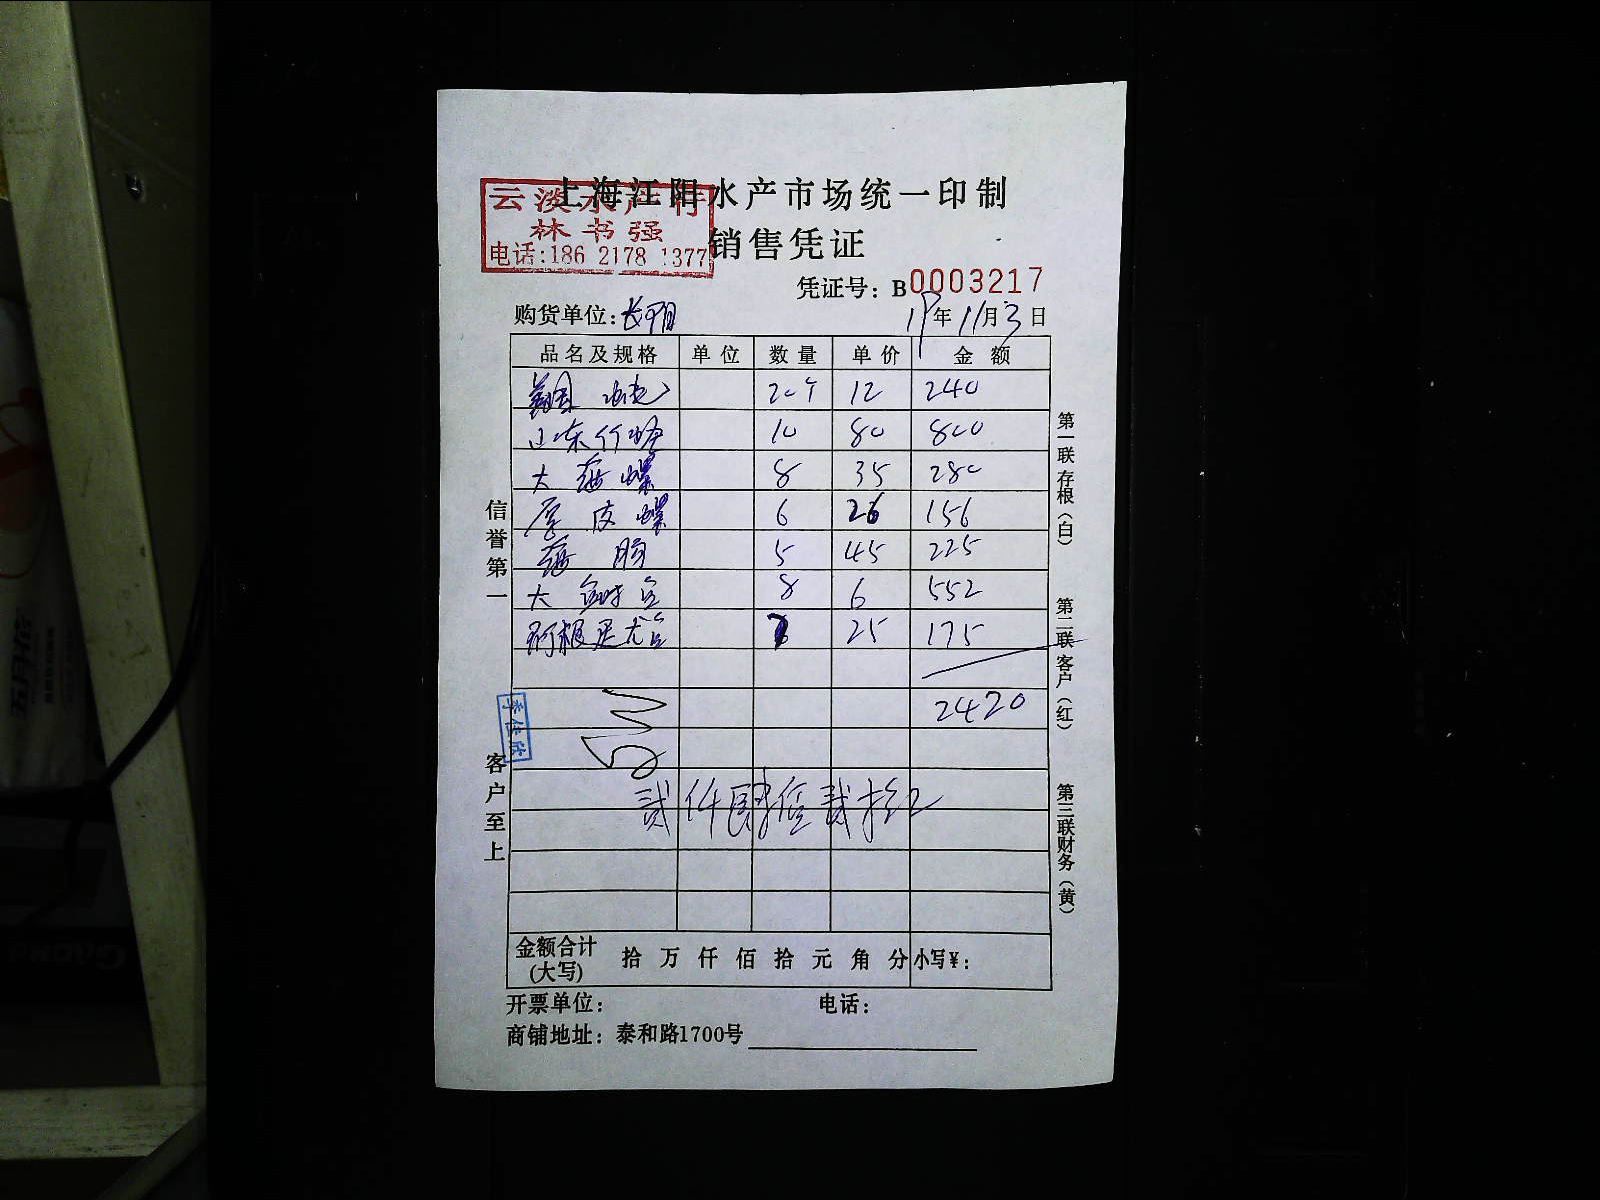 上海江阳水产市场统一印制
云淡水产行
林书强
电话:186 2178 1377
销售凭证
凭证号: B0003217
购货单位: 长阳
19年11月3日
品名及规格 单位 数量 单价 金额
20个 12 240
山东竹蛏 10 80 800
大海螺 8 35 280
厚皮螺 6 26 156
海肠 5 45 225
大 8 6 552
阿根廷尤 7 25 175
2420
贰仟肆佰贰拾
信誉第一
客户至上
李佳欣
第一联 存根(白)
第二联 客户(红)
第三联 财务(黄)
金额合计(大写) 拾 万 仟 佰 拾 元 角 分 小写¥:
开票单位: 电话:
商铺地址: 泰和路1700号